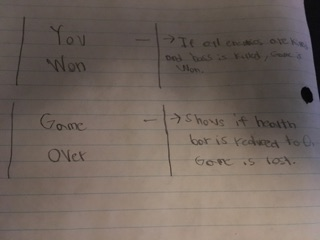 You
Won
→ If all enemies are killed
and boss is killed, Game is
Won.
Game
Over
→ Shows if health
bar is reduced to 0.
Game is lost.